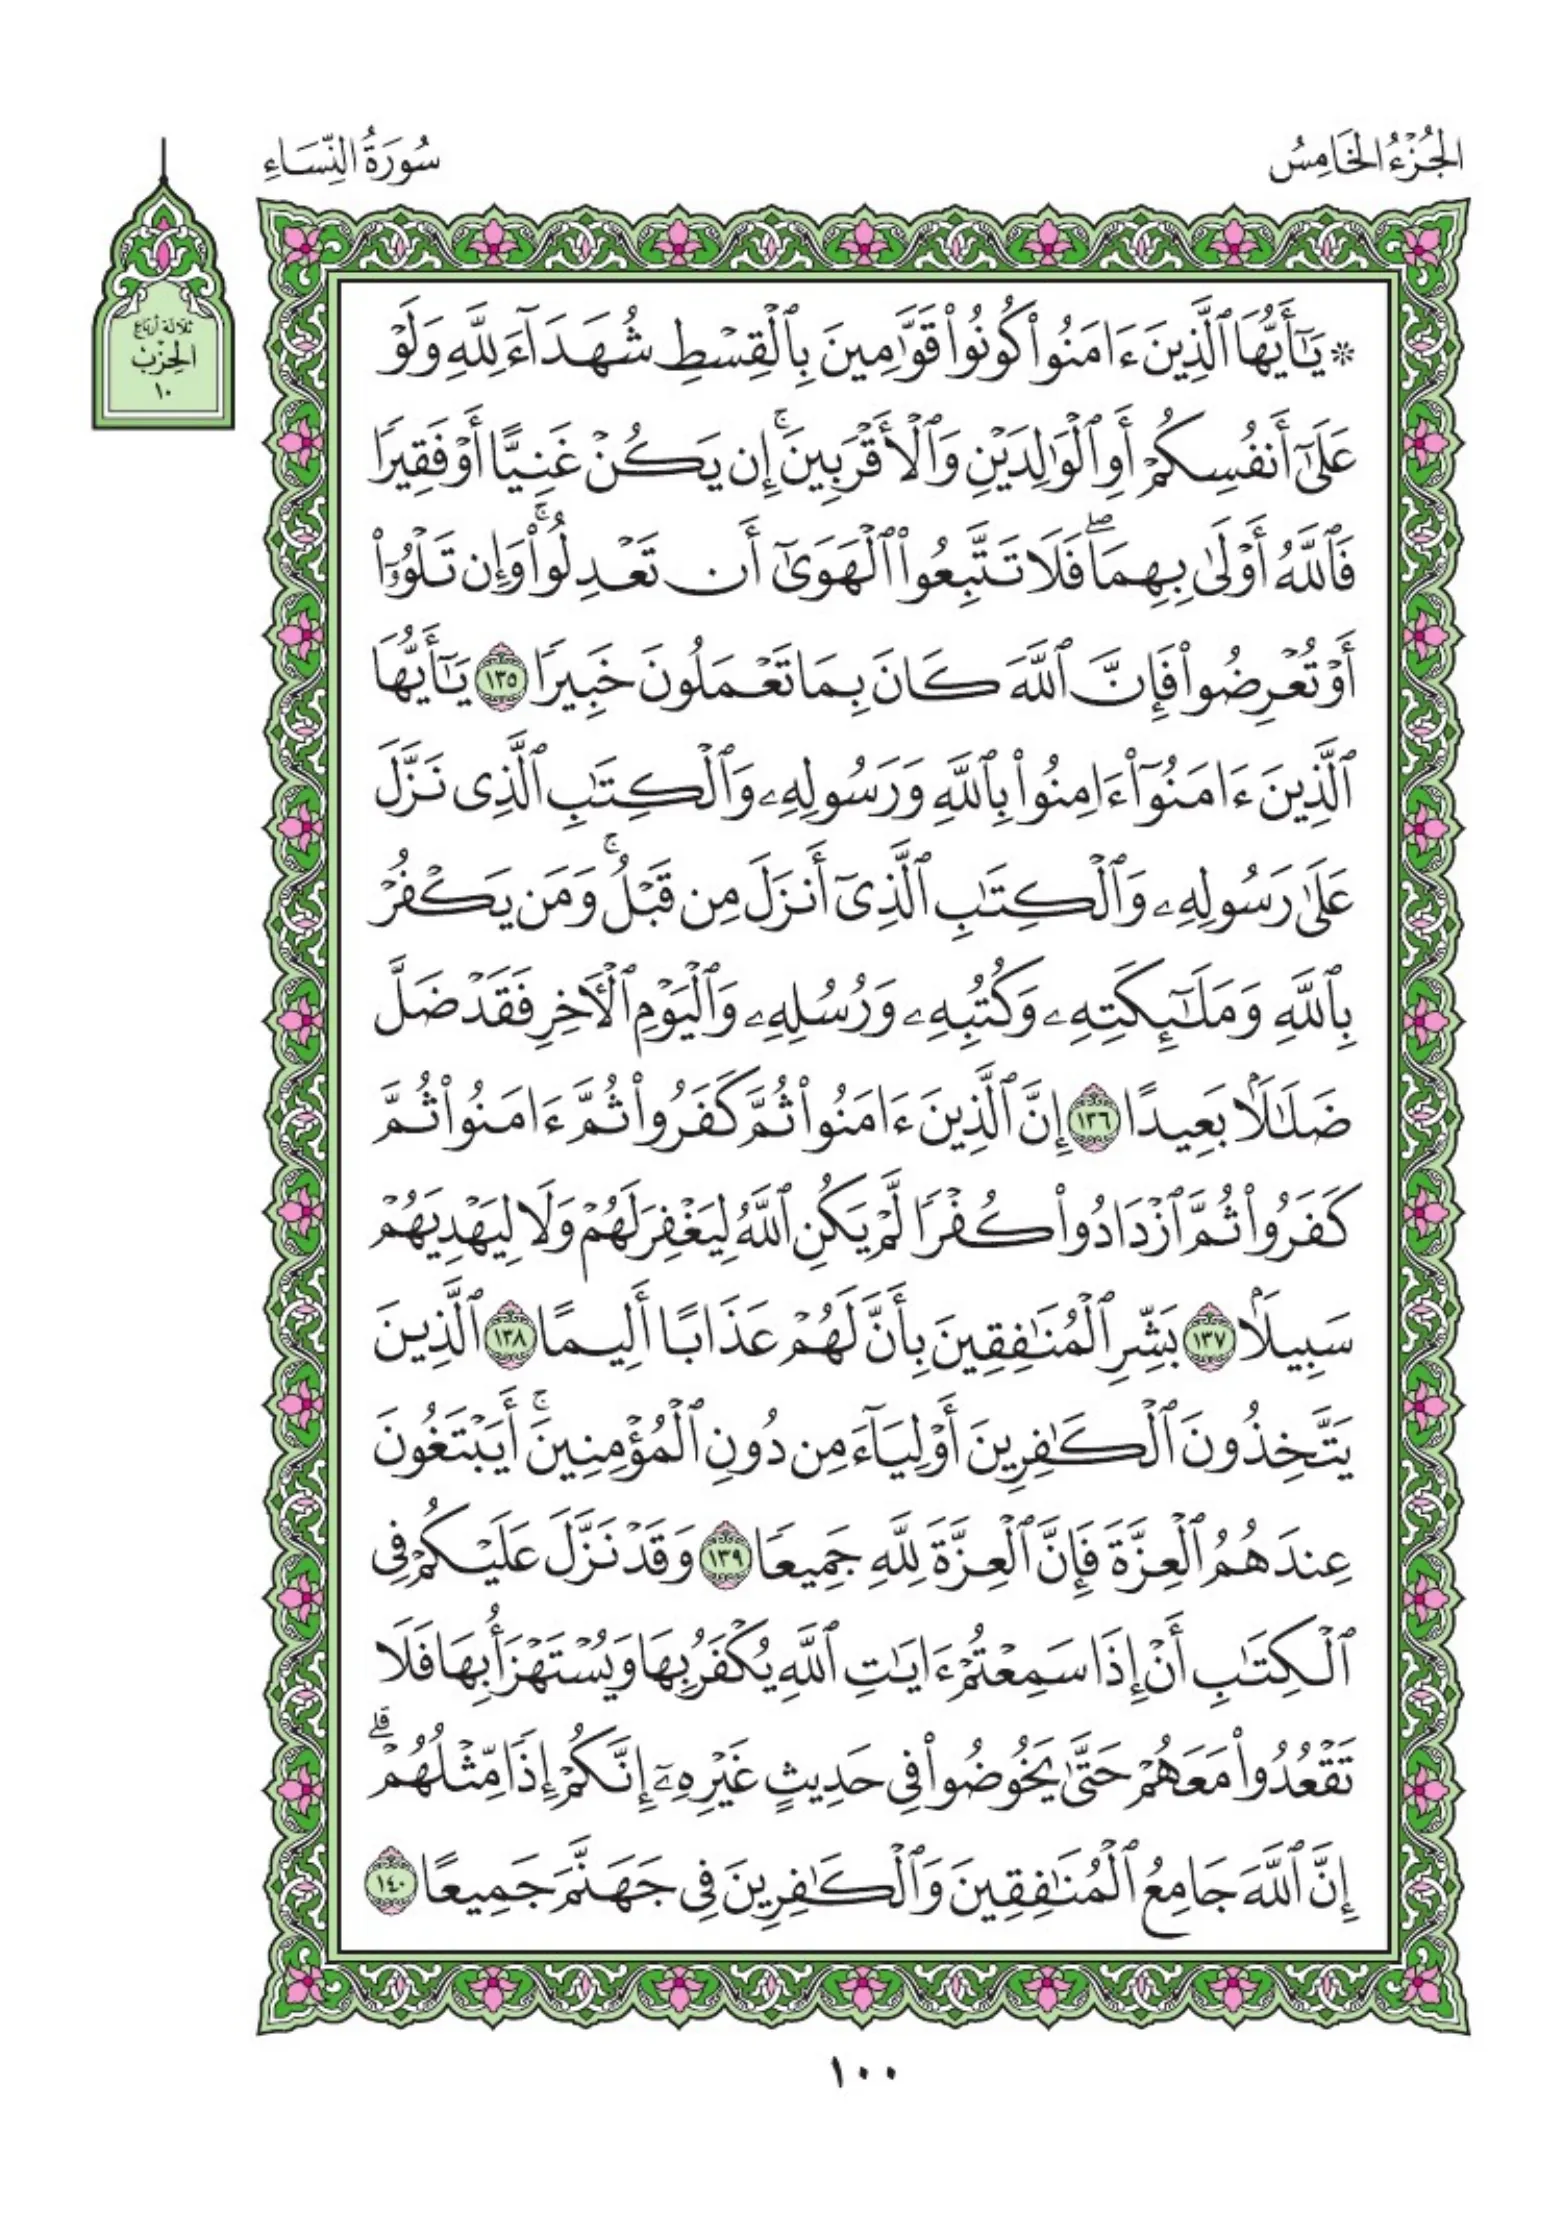 الجُزْءُ الخَامِسُ
سُورَةُ النِّسَاءِ
ثلاثة أرباع
الحِزْب
١٠
۞ يَـٰٓأَيُّهَا ٱلَّذِينَ ءَامَنُوا۟ كُونُوا۟ قَوَّٰمِينَ بِٱلْقِسْطِ شُهَدَآءَ لِلَّهِ وَلَوْ
عَلَىٰٓ أَنفُسِكُمْ أَوِ ٱلْوَٰلِدَيْنِ وَٱلْأَقْرَبِينَ ۚ إِن يَكُنْ غَنِيًّا أَوْ فَقِيرًا
فَٱللَّهُ أَوْلَىٰ بِهِمَا ۖ فَلَا تَتَّبِعُوا۟ ٱلْهَوَىٰٓ أَن تَعْدِلُوا۟ ۚ وَإِن تَلْوُۥٓا۟
أَوْ تُعْرِضُوا۟ فَإِنَّ ٱللَّهَ كَانَ بِمَا تَعْمَلُونَ خَبِيرًا ١٣٥ يَـٰٓأَيُّهَا
ٱلَّذِينَ ءَامَنُوٓا۟ ءَامِنُوا۟ بِٱللَّهِ وَرَسُولِهِۦ وَٱلْكِتَـٰبِ ٱلَّذِى نَزَّلَ
عَلَىٰ رَسُولِهِۦ وَٱلْكِتَـٰبِ ٱلَّذِىٓ أَنزَلَ مِن قَبْلُ ۚ وَمَن يَكْفُرْ
بِٱللَّهِ وَمَلَـٰٓئِكَتِهِۦ وَكُتُبِهِۦ وَرُسُلِهِۦ وَٱلْيَوْمِ ٱلْـَٔاخِرِ فَقَدْ ضَلَّ
ضَلَـٰلًۢا بَعِيدًا ١٣٦ إِنَّ ٱلَّذِينَ ءَامَنُوا۟ ثُمَّ كَفَرُوا۟ ثُمَّ ءَامَنُوا۟ ثُمَّ
كَفَرُوا۟ ثُمَّ ٱزْدَادُوا۟ كُفْرًا لَّمْ يَكُنِ ٱللَّهُ لِيَغْفِرَ لَهُمْ وَلَا لِيَهْدِيَهُمْ
سَبِيلًۢا ١٣٧ بَشِّرِ ٱلْمُنَـٰفِقِينَ بِأَنَّ لَهُمْ عَذَابًا أَلِيمًا ١٣٨ ٱلَّذِينَ
يَتَّخِذُونَ ٱلْكَـٰفِرِينَ أَوْلِيَآءَ مِن دُونِ ٱلْمُؤْمِنِينَ ۚ أَيَبْتَغُونَ
عِندَهُمُ ٱلْعِزَّةَ فَإِنَّ ٱلْعِزَّةَ لِلَّهِ جَمِيعًا ١٣٩ وَقَدْ نَزَّلَ عَلَيْكُمْ فِى
ٱلْكِتَـٰبِ أَنْ إِذَا سَمِعْتُمْ ءَايَـٰتِ ٱللَّهِ يُكْفَرُ بِهَا وَيُسْتَهْزَأُ بِهَا فَلَا
تَقْعُدُوا۟ مَعَهُمْ حَتَّىٰ يَخُوضُوا۟ فِى حَدِيثٍ غَيْرِهِۦٓ إِنَّكُمْ إِذًا مِّثْلُهُمْ ۗ
إِنَّ ٱللَّهَ جَامِعُ ٱلْمُنَـٰفِقِينَ وَٱلْكَـٰفِرِينَ فِى جَهَنَّمَ جَمِيعًا ١٤٠
١٠٠